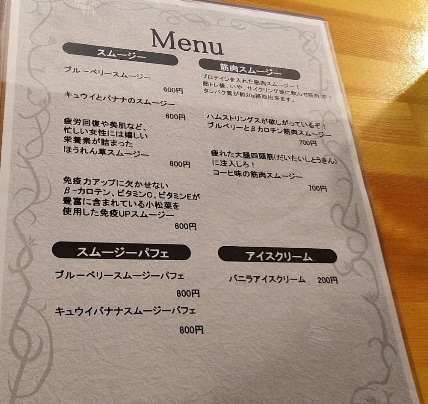 Menu
スムージー
ブルーベリースムージー
600円
キュウイとバナナのスムージー
600円
疲労回復や美肌など、
忙しい女性には嬉しい
栄養素が詰まった
ほうれん草スムージー
600円
免疫力アップに欠かせない
β-カロテン、ビタミンC、ビタミンEが
豊富に含まれている小松菜を
使用した免疫UPスムージー
600円
筋肉スムージー
プロテインを入れた筋肉スムージー!
筋トレ後、いや、サイクリング後に飲んで筋肉を!
タンパク質が約20g摂取出来ます。
ハムストリングスが欲しがっているぞ!
ブルベリーとβカロテン筋肉スムージー
700円
疲れた大腿四頭筋(だいたいしとうきん)
に注入しろ!
コーヒ味の筋肉スムージー
700円
スムージーパフェ
ブルーベリースムージーパフェ
800円
キュウイバナナスムージーパフェ
800円
アイスクリーム
バニラアイスクリーム 200円